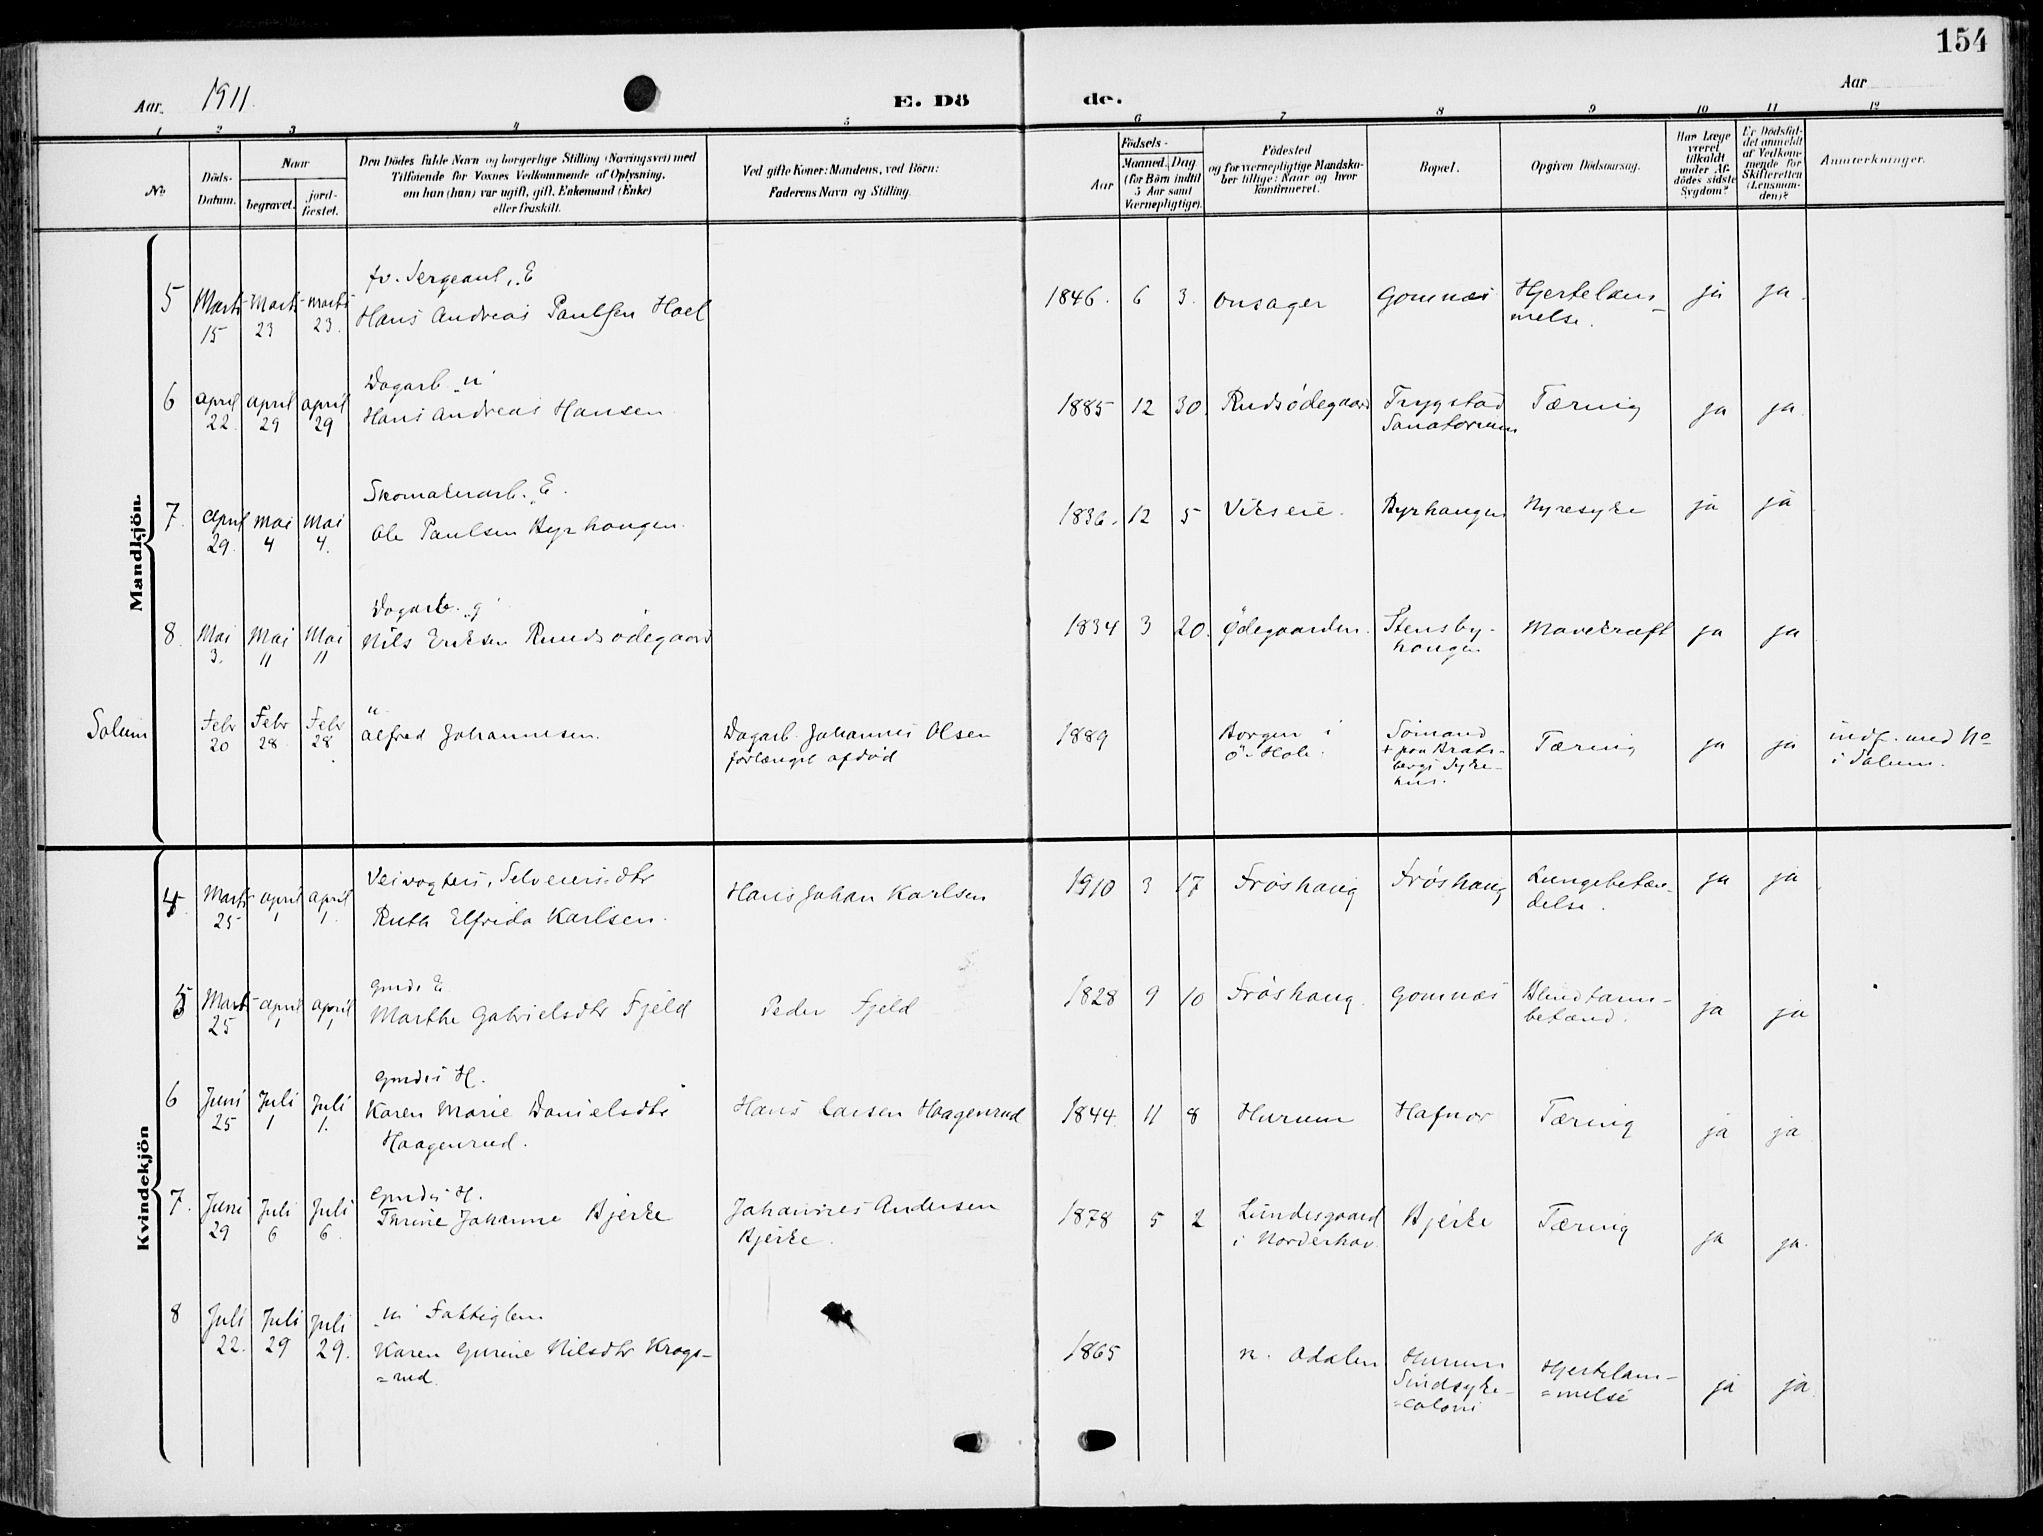 154
Aar 1911.
E. Dö de.
Aar
1 2 3 4 5 6 7 8 9 10 11 12
No.
Döds-Datum.
Naar
begravet.
jordfæstet.
Den Dödes fulde Navn og borgerlige Stilling (Næringsvei) med
Tilföiende for Voxnes Vedkommende af Oplysning,
om han (hun) var ugift, gift, Enkemand (Enke)
eller fraskilt.
Ved gifte Koner: Mandens, ved Börn:
Faderens Navn og Stilling.
Aar
Födsels-
Maaned. Dag
(for Börn indtil
5 Aar samt
Værnepligtige).
Födested
og for værnepligtige Mandskaber tillige: Naar og hvor
konfirmeret.
Bopæl.
Opgiven Dödsaarsag.
Har Læge
været
tilkaldt
under Afdödes sidste
Sygdom?
Er Dödsfaldet anmeldt
af Vedkommende for
Skifteretten
(Lensmanden)?
Anmærkninger.
Mandkjön.
fv. Sergeant, E
5 Marts 15 Marts 23 Marts 23. Hans Andreas Paulsen Hoel 1846. 6 3. Onsager Gomnæs Hjertelam-
melse. ja ja.
Dagarb. "u"
6 april 22. april 29 april 29 Hans Andreas Hansen 1885 12 30. Rudsødegaard Trygstad
Sanatorium Tæring ja ja.
Skomakerarb. E.
7. april 29. mai 4 mai 4. Ole Paulsen Byrhaugen. 1836. 12 5 Vikseie. Byrhaugen Nyresyke ja ja
Dagarb. "g"
8. Mai 3. Mai 11 Mai 11 Nils Eriksen Rundsødegaard 1834 3 20. Ødegaarden. Stensby-
haugen Mavekræft ja ja
Solum Febr 20 Febr 28 Febr 28. u
Alfred Johannesen. Dagarb. Johannes Olsen
forlængst afdød 1889 Borgen i
Ø. Hole. Sømand
+ paa Brats-
bergs Syke-
hus. Tæring ja ja indf. med No
i Solum.
Kvindekjön
Veivogters, Selveiersdtr
4 Marts 25 april 1 april 1. Ruth Elfrida Karlsen. Hans Johan Karlsen 1910 3 17 Frøshaug Frøshaug Lungebetæn-
delse. ja ja
Gmds E.
5 Marts 25 april 1 april 1 Marthe Gabrielsdtr Fjeld Peder Fjeld 1828 9 10 Frøshaug. Gomnæs Blindtarm-
betænd. ja ja
Gmdss H.
6 Juni 25 Juli 1 Juli 1. Karen Marie Danielsdtr
Haagenrud. Hans Larsen Haagenrud 1844. 11 8 Hurum Hafnor Tæring ja ja
Gmdss H.
7. Juni 29 Juli 6 Juli 6. Thrine Johanne Bjerke Johannes Andersen
Bjerke. 1878 5 2 Lundesgaard
i Norderhov. Bjerke Tæring ja ja.
"u" Fattiglem
8 Juli 22. Juli 29 Juli 29. Karen Gurine Nilsdtr Krags-
=rud. 1865 n. Aadalen Hurum
Sindsyke-
=coloni Hjertelam-
=melse ja ja.